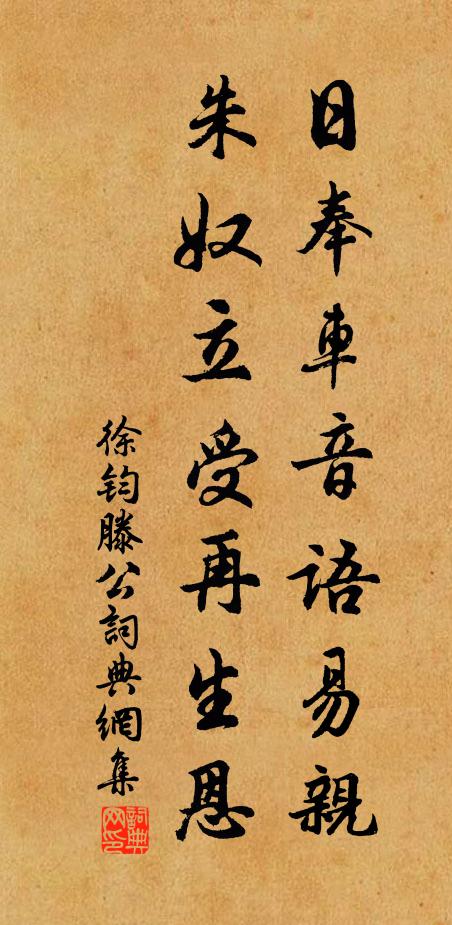 日奉車音語易親
朱奴立受再生恩
徐鈞滕公詞典網集
詞典网印